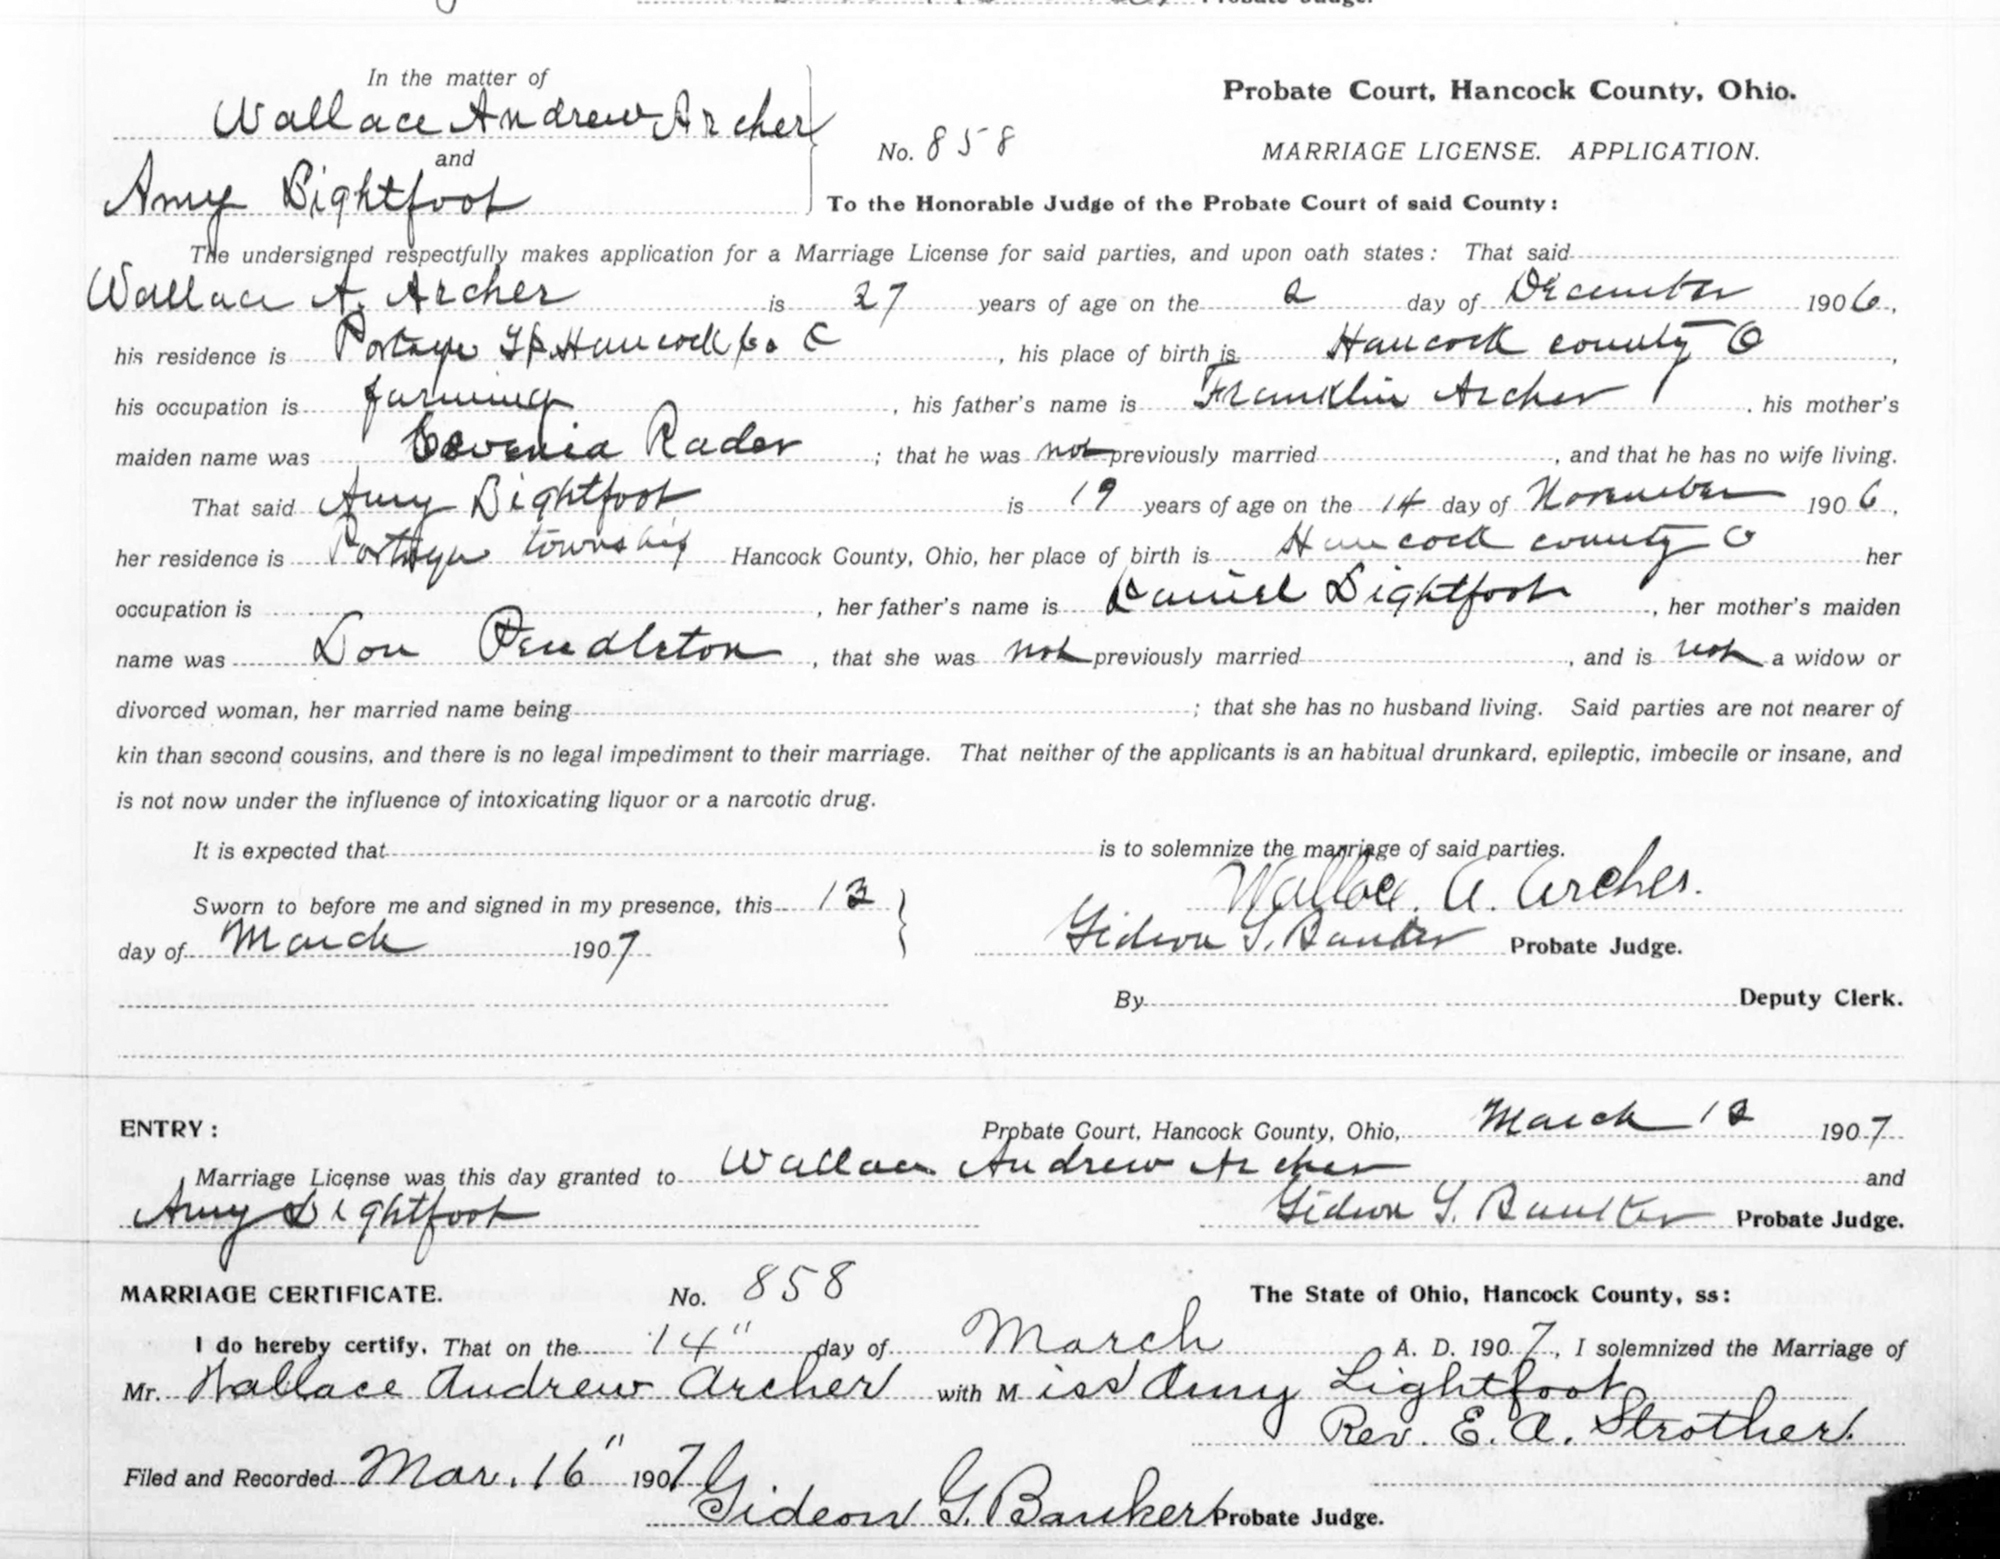 Probate Judge.
In the matter of
Wallace Andrew Archer
and
Amy Lightfoot
No. 858
Probate Court, Hancock County, Ohio.
MARRIAGE LICENSE. APPLICATION.
To the Honorable Judge of the Probate Court of said County:
The undersigned respectfully makes application for a Marriage License for said parties, and upon oath states: That said
Wallace A. Archer is 27 years of age on the 2 day of December 1906,
his residence is Portage Tp. Hancock Co O, his place of birth is Hancock county O,
his occupation is farming, his father's name is Franklin Archer, his mother's
maiden name was Rader; that he was not previously married, and that he has no wife living.
That said Amy Lightfoot is 19 years of age on the 14 day of November 1906,
her residence is Portage township Hancock County, Ohio, her place of birth is Hancock county O her
occupation is , her father's name is Daniel Lightfoot, her mother's maiden
name was Lou Pendleton, that she was not previously married, and is not a widow or
divorced woman, her married name being ; that she has no husband living. Said parties are not nearer of
kin than second cousins, and there is no legal impediment to their marriage. That neither of the applicants is an habitual drunkard, epileptic, imbecile or insane, and
is not now under the influence of intoxicating liquor or a narcotic drug.
It is expected that is to solemnize the marriage of said parties.
Wallace. A. Archer.
Sworn to before me and signed in my presence, this 12
day of March 1907
Gideon G. Banker Probate Judge.
By Deputy Clerk.
ENTRY: Probate Court, Hancock County, Ohio, March 12 1907
Marriage License was this day granted to Wallace Andrew Archer and
Amy Lightfoot Gideon G. Banker Probate Judge.
MARRIAGE CERTIFICATE. No. 858 The State of Ohio, Hancock County, ss:
I do hereby certify, That on the 14" day of March A. D. 1907, I solemnized the Marriage of
Mr. Wallace Andrew Archer with Miss Amy Lightfoot
Rev. E. A. Strother.
Filed and Recorded Mar. 16" 1907
Gideon G. Banker Probate Judge.